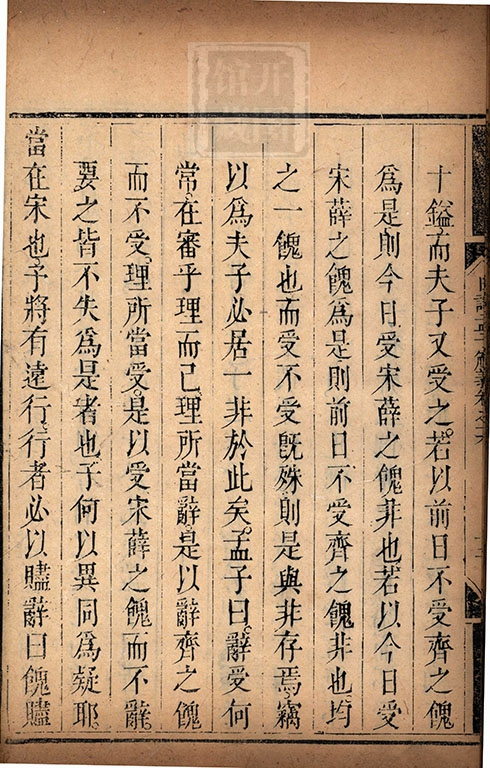 十鎰而夫子又受之若以前日不受齊之餽
爲是則今日受宋薛之餽非也若以今日受
宋薛之餽爲是則前日不受齊之餽非也均
之一餽也而受不受旣殊則是與非存焉竊
以爲夫子必居一非於此矣孟子曰辭受何
常在審乎理而已理所當辭是以辭齊之餽
而不受理所當受是以受宋薛之餽而不辭
要之皆不失爲是者也子何以異同爲疑耶
當在宋也予將有遠行行者必以贐辭曰餽贐